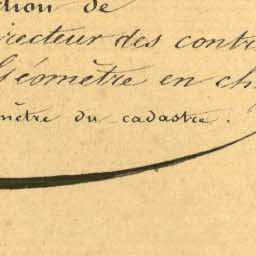 ction de
irecteur des contr
Géomètre en ch
mètre du cadastre.